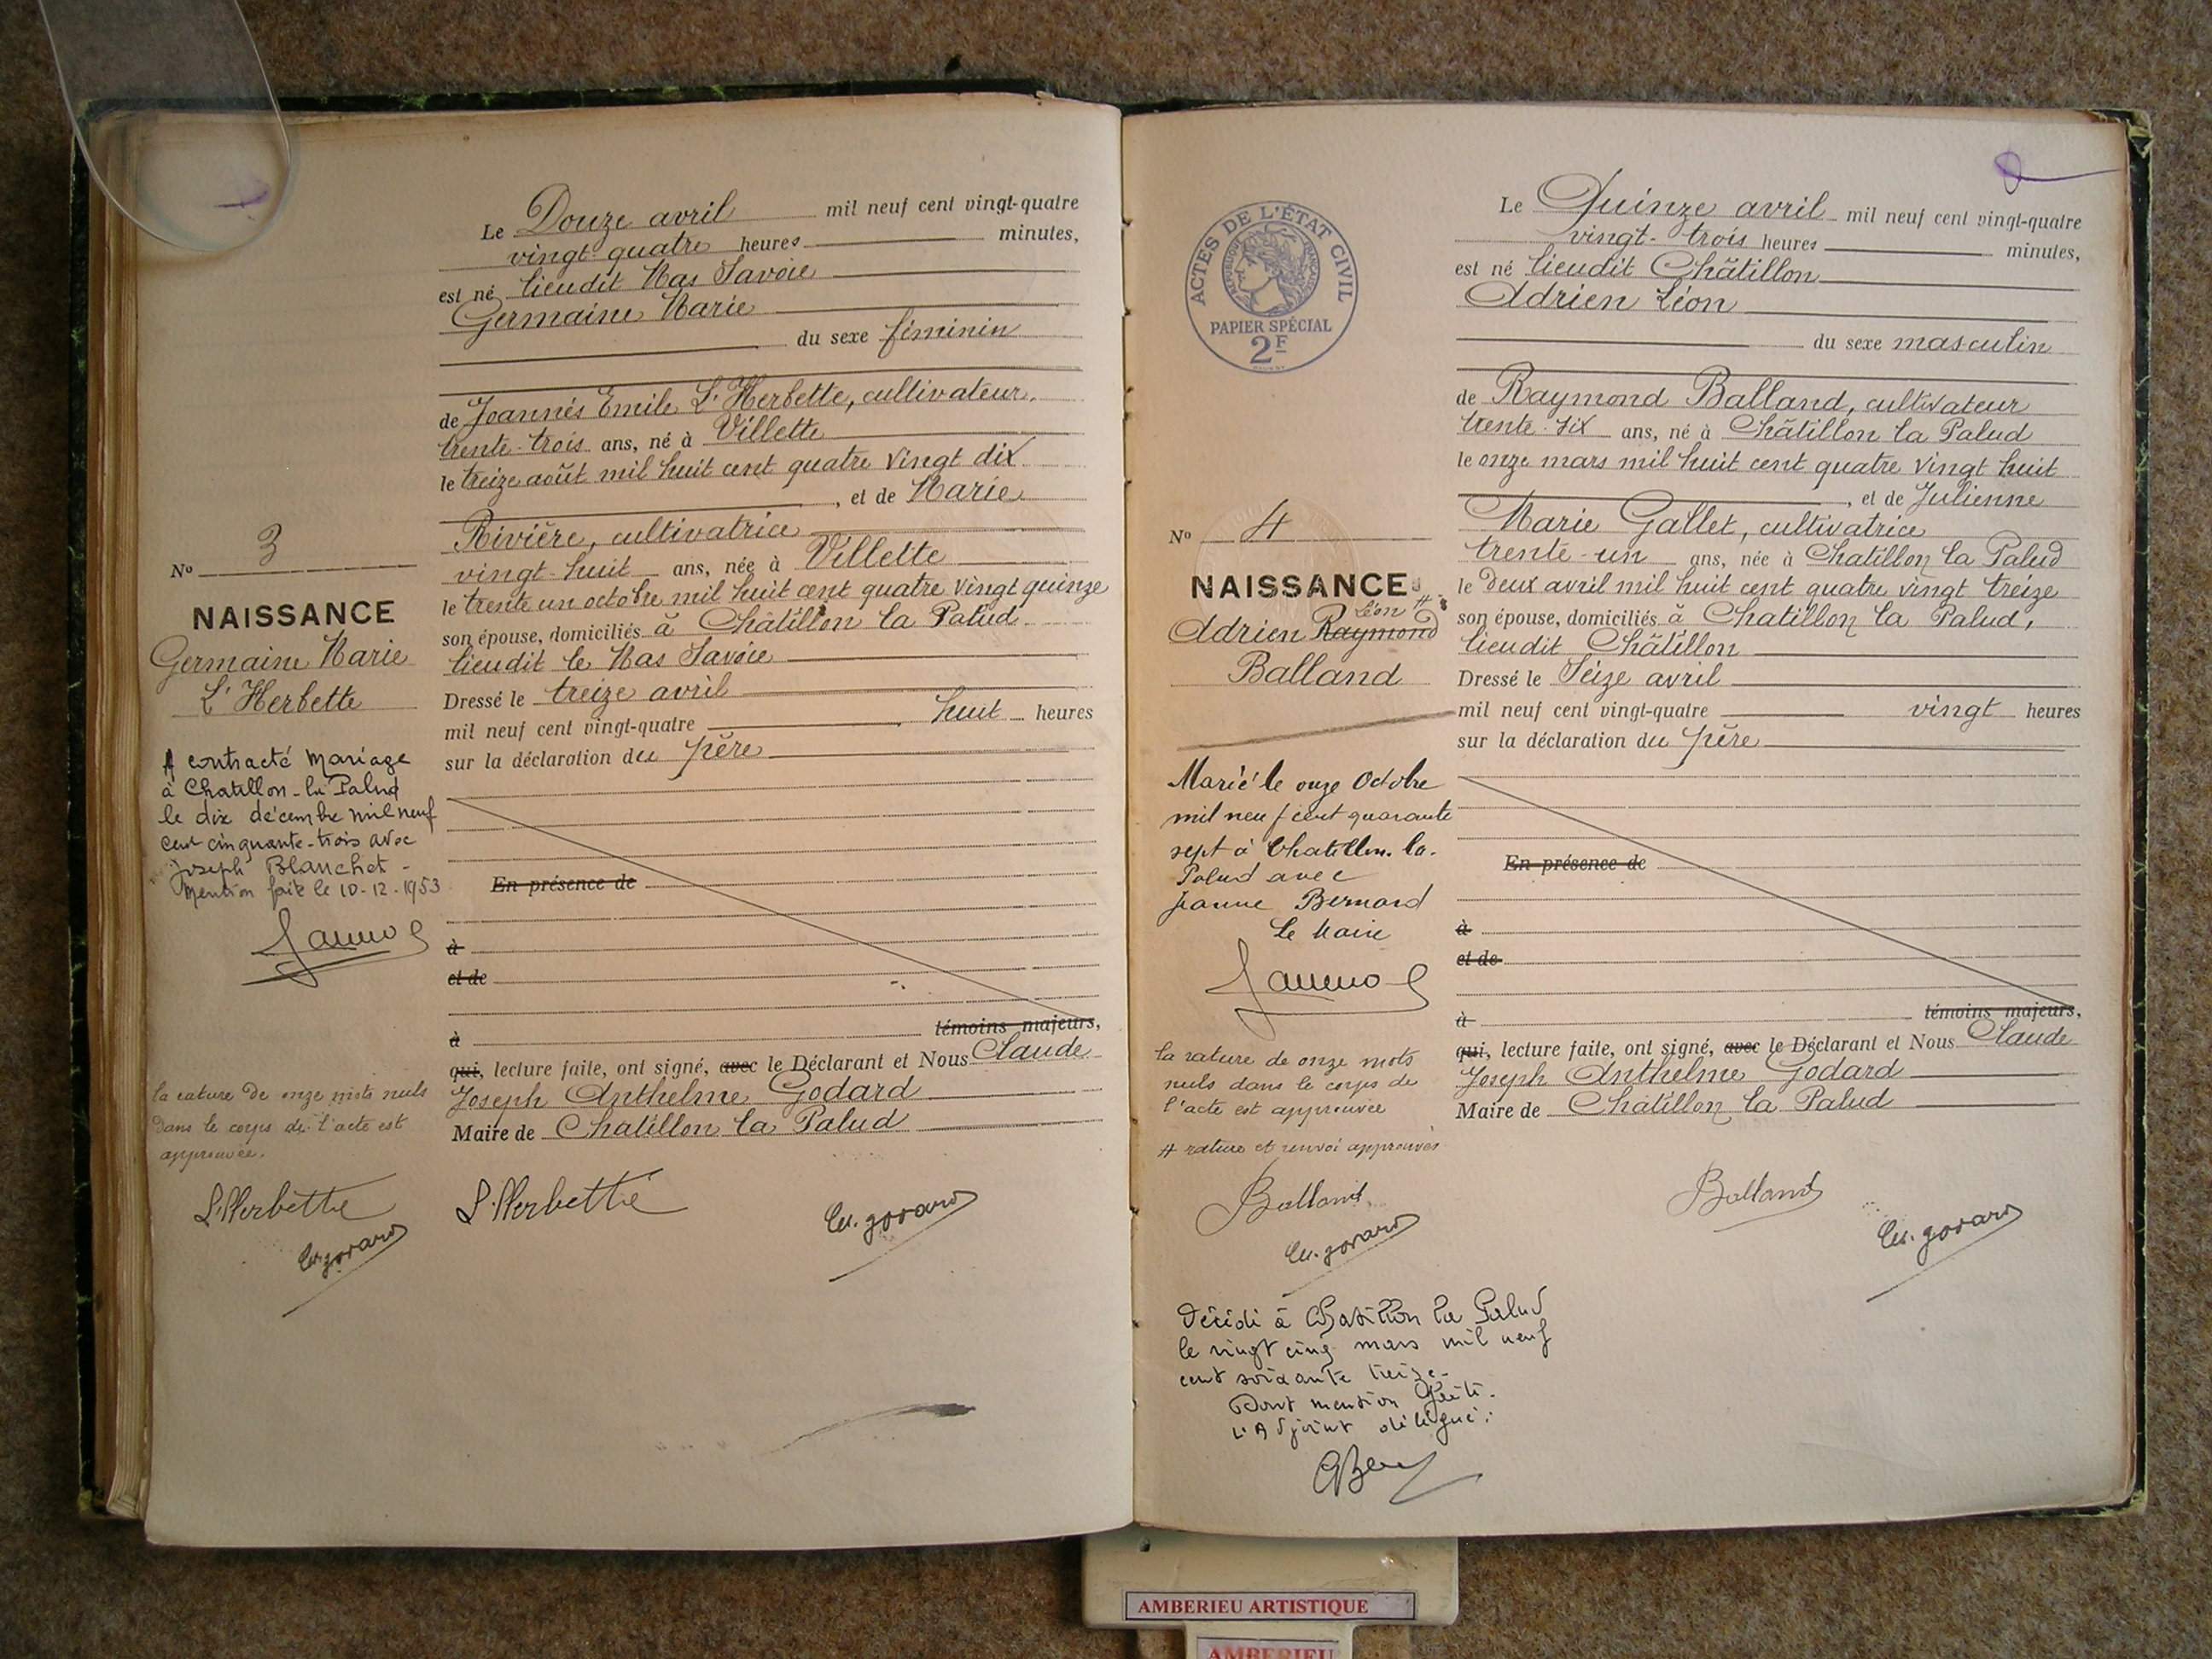 Le Douze avril mil neuf cent vingt-quatre
vingt-quatre heures minutes,
est né lieudit Mas Savoie
Germaine Marie
du sexe féminin
de Joannès Emile L'Herbette, cultivateur,
trente-trois ans, né à Villette
le treize août mil huit cent quatre vingt dix
, et de Marie
Rivière, cultivatrice
vingt-huit ans, née à Villette
le trente un octobre mil huit cent quatre vingt quinze
son épouse, domiciliés à Châtillon la Palud
lieudit le Mas Savoie
Dressé le treize avril
mil neuf cent vingt-quatre huit heures
sur la déclaration du père
En présence de
à
et de
à témoins majeurs,
qui, lecture faite, ont signé, avec le Déclarant et Nous Claude
Joseph Anthelme Godard
Maire de Chatillon la Palud
L'Herbette
Cl. Godard
No 3
NAISSANCE
Germaine Marie
L'Herbette
A contracté mariage
à Chatillon-la Palud
le dix décembre mil neuf
cent cinquante-trois avec
Joseph Blanchet -
Mention faite le 10-12-1953
la rature de onze mots nuls
dans le corps de l'acte est
approuvée.
L'Herbette
Cl. Godard
ACTES DE L'ÉTAT CIVIL
RÉPUBLIQUE FRANÇAISE
PAPIER SPÉCIAL
2F
No 4
NAISSANCE
Léon #
Adrien Raymond
Balland
Marié le onze Octobre
mil neuf cent quarante
sept à Chatillon-la-
Palud avec
Jeanne Bernard
Le Maire
la rature de onze mots
nuls dans le corps de
l'acte est approuvée
# rature et renvoi approuvés
Balland
Cl. Godard
Décédé à Chatillon la Palud
le vingt cinq mars mil neuf
cent soixante treize-
Dont mention faite.
L'Adjoint délégué:
Le Quinze avril mil neuf cent vingt-quatre
vingt-trois heures minutes,
est né lieudit Châtillon
Adrien Léon
du sexe masculin
de Raymond Balland, cultivateur
trente-six ans, né à Châtillon la Palud
le onze mars mil huit cent quatre vingt huit
, et de Julienne
Marie Gallet, cultivatrice
trente-un ans, née à Chatillon la Palud
le deux avril mil huit cent quatre vingt treize
son épouse, domiciliés à Chatillon la Palud,
lieudit Châtillon
Dressé le Seize avril
mil neuf cent vingt-quatre vingt heures
sur la déclaration du père
En présence de
à
et de
à témoins majeurs,
qui, lecture faite, ont signé, avec le Déclarant et Nous Claude
Joseph Anthelme Godard
Maire de Chatillon la Palud
Balland
Cl. Godard
AMBERIEU ARTISTIQUE
AMBERIEU